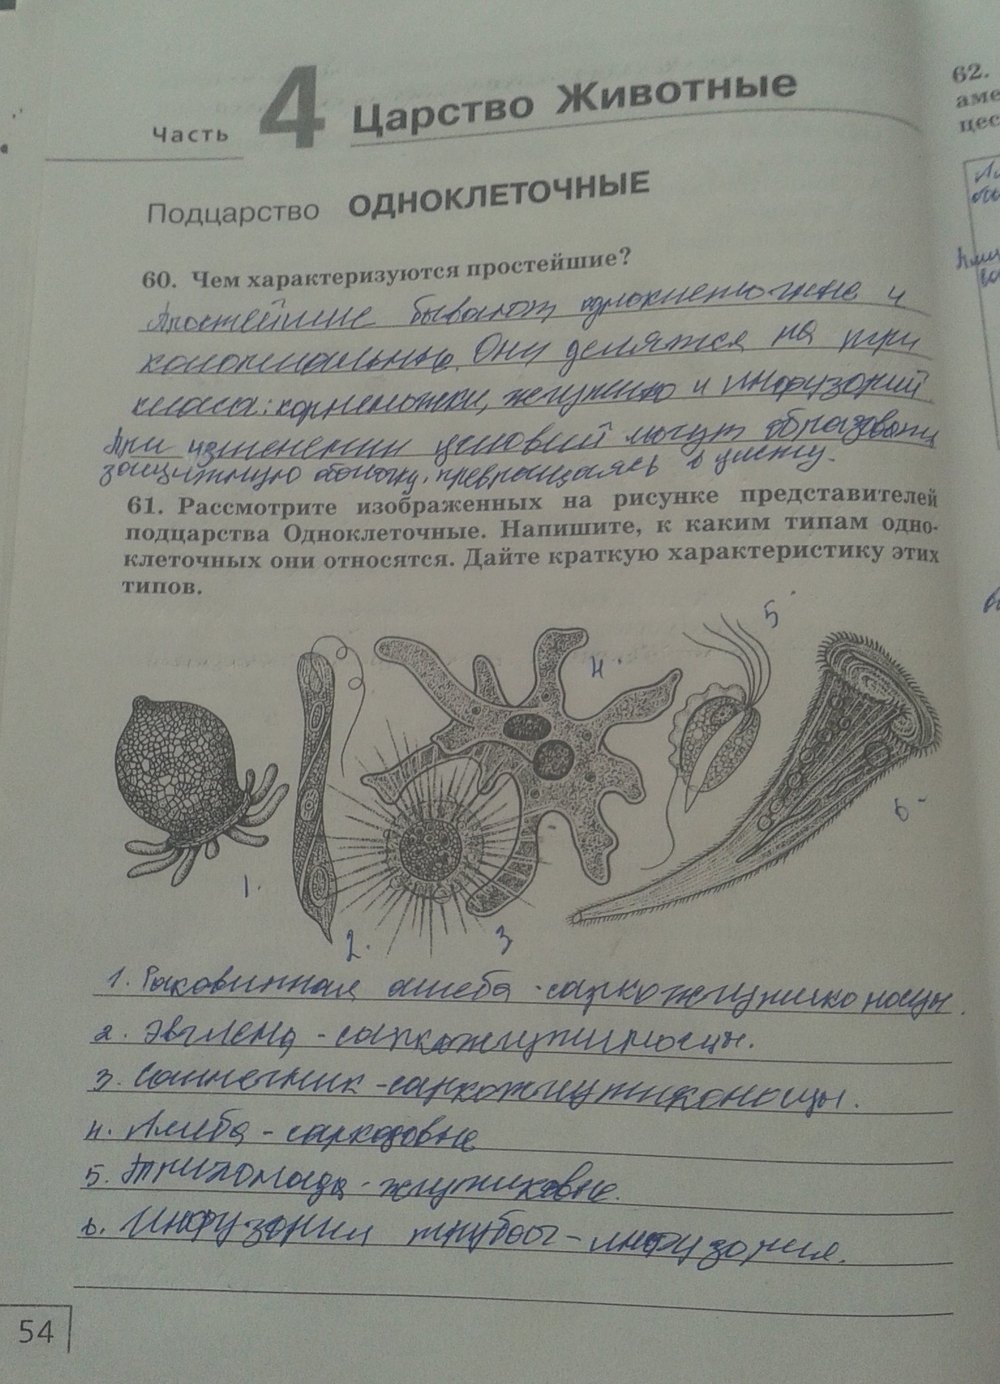 Часть 4 Царство Животные
62.
аме
цес
Подцарство ОДНОКЛЕТОЧНЫЕ
60. Чем характеризуются простейшие?
Простейшие бывают одноклеточные и
колониальные. Они делятся на три
класса: корненожки, жгутико и инфузорий.
При изменении условий могут образовать
защитную оболочку, превращаясь в цисту.
61. Рассмотрите изображенных на рисунке представителей
подцарства Одноклеточные. Напишите, к каким типам одно-
клеточных они относятся. Дайте краткую характеристику этих
типов.
1.
2.
3
4.
5
6
1. Раковинная амеба - саркожгутиконосцы.
2. Эвглена - саркожгутиконосцы.
3. Солнечник - саркожгутиконосцы.
4. Амеба - саркодовые
5. Трихомонада - жгутиковые.
6. Инфузория трубач - инфузория.
54